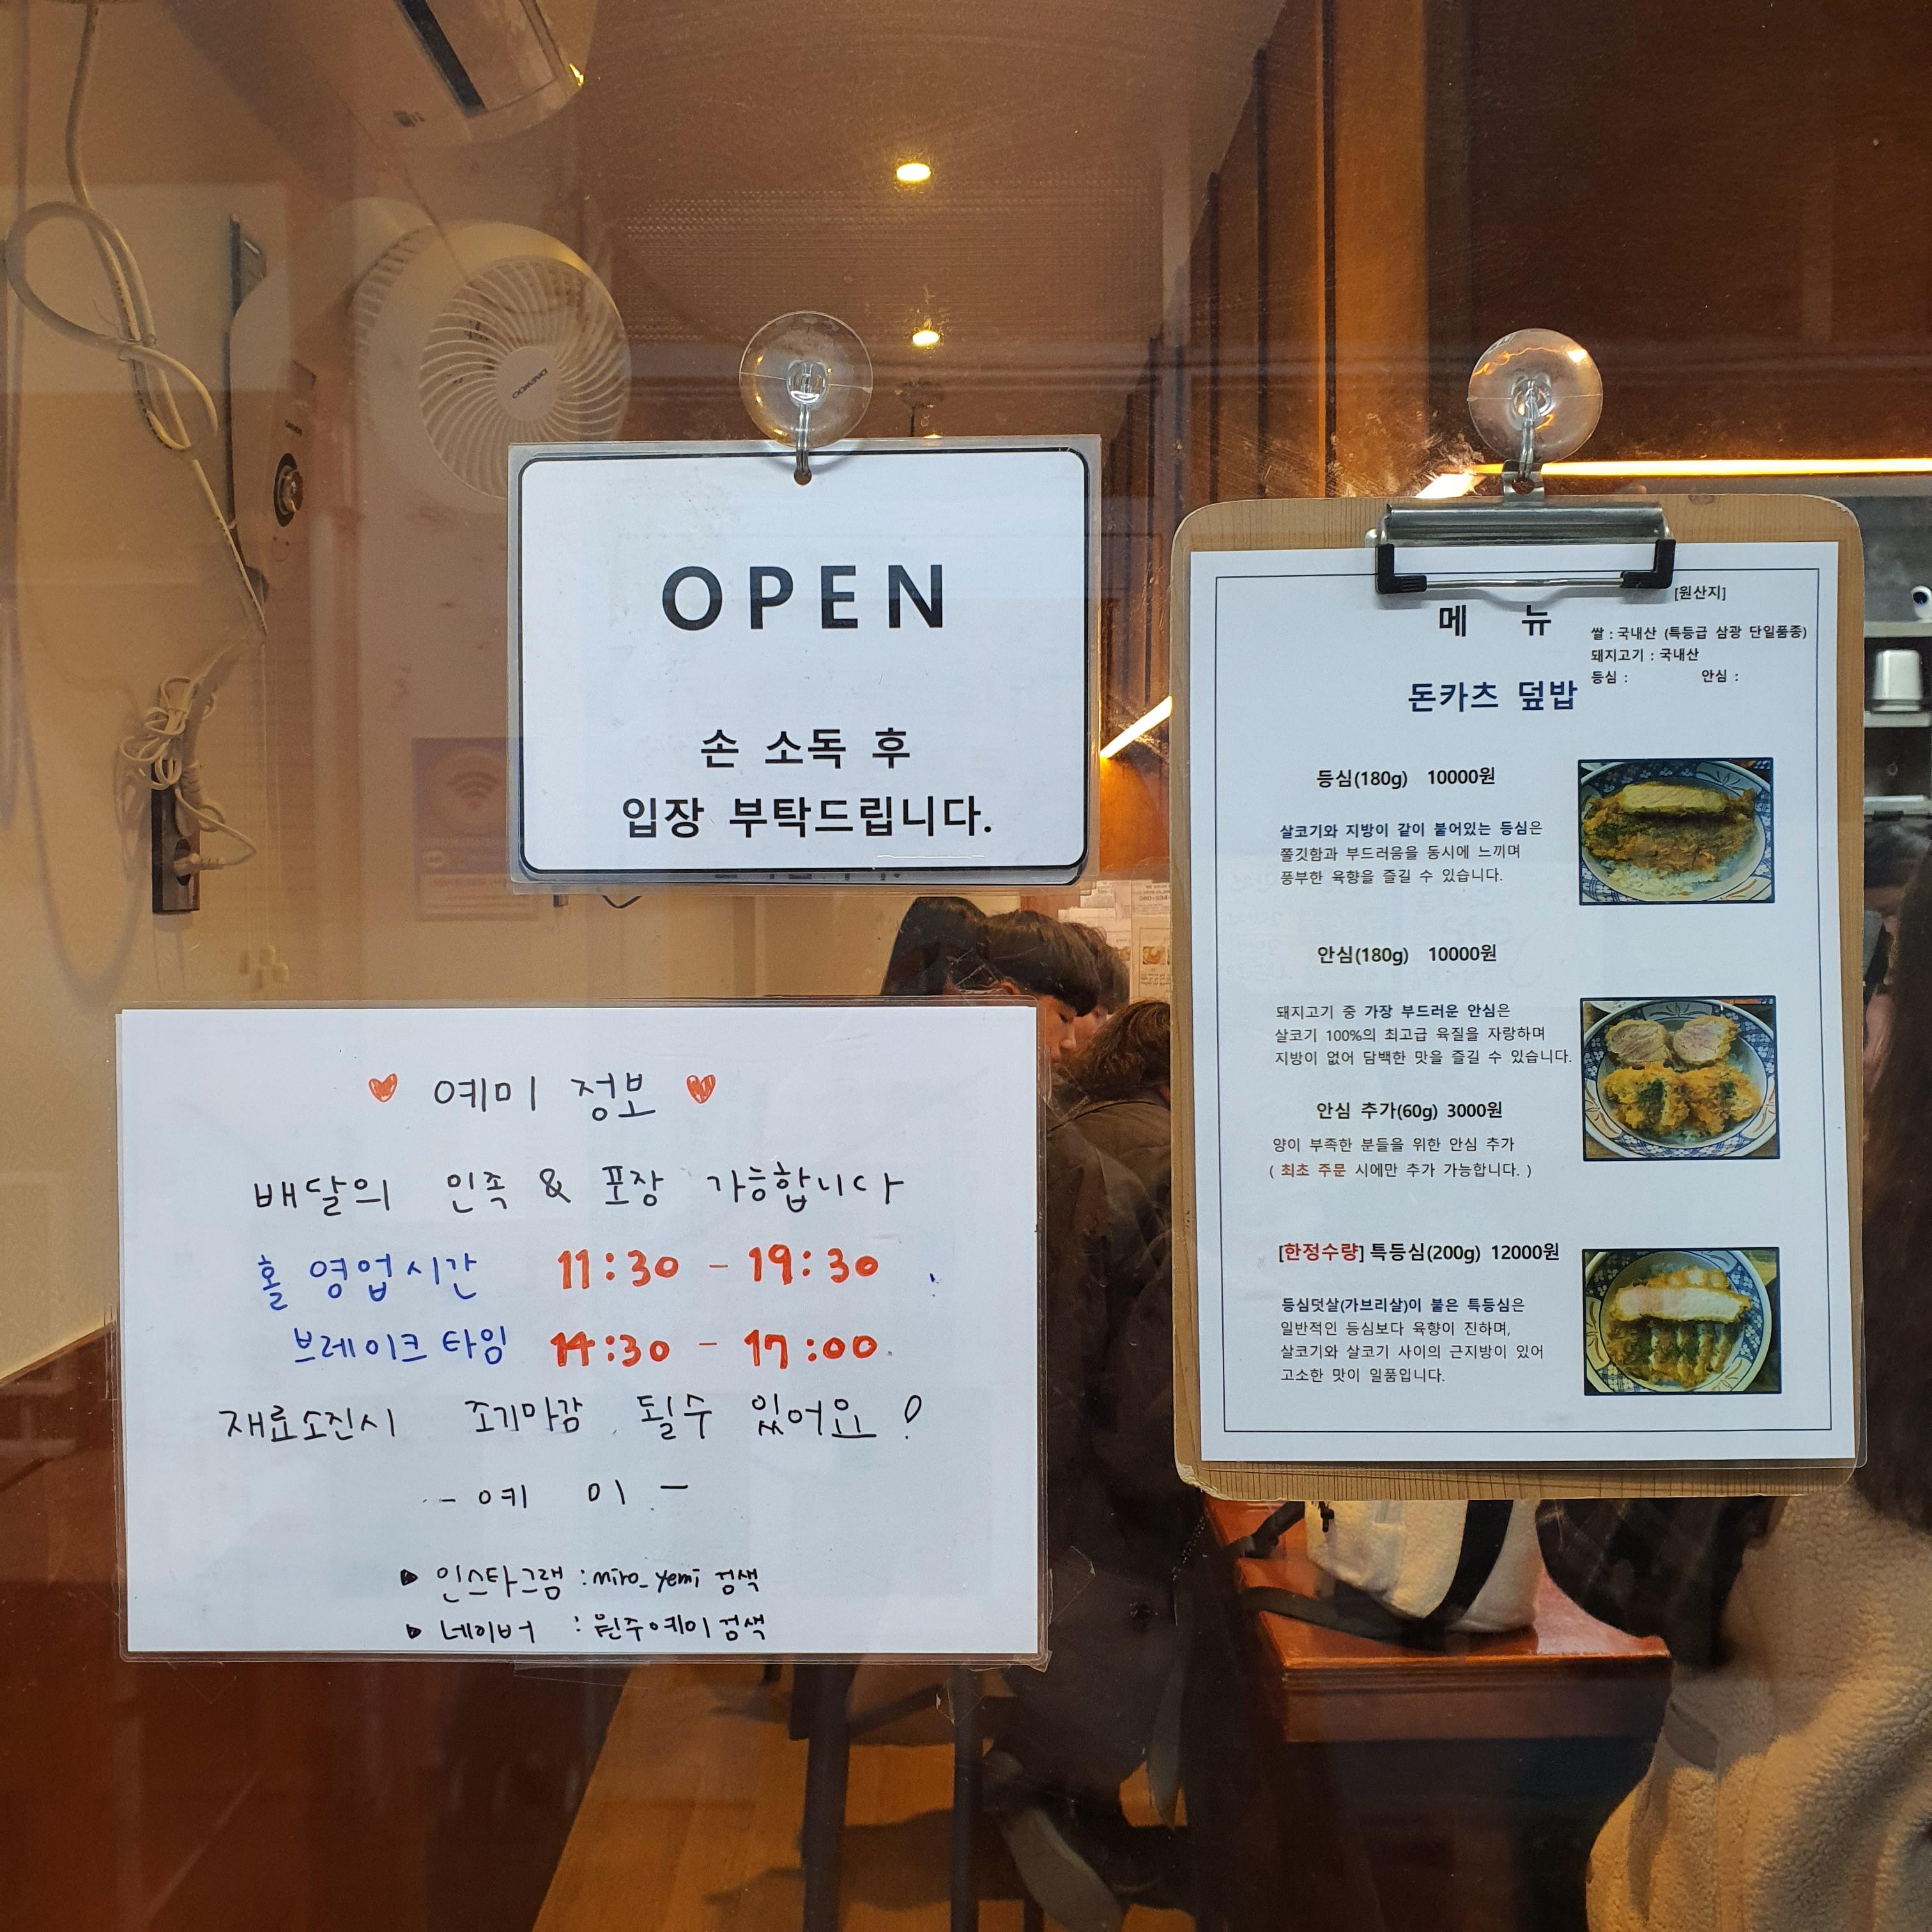 OPEN
손 소독 후
입장 부탁드립니다.
예미 정보
배달의 민족 & 포장 가능합니다
홀 영업시간 11:30 - 19:30
브레이크 타임 14:30 - 17:00
재료소진시 조기마감 될수 있어요!
- 예 미 -
▶ 인스타그램 : miro_yemi 검색
▶ 네이버 : 원주예미 검색
메 뉴
[원산지]
쌀 : 국내산 (특등급 삼광 단일품종)
돼지고기 : 국내산
등심 : 안심 :
돈카츠 덮밥
등심(180g) 10000원
살코기와 지방이 같이 붙어있는 등심은
쫄깃함과 부드러움을 동시에 느끼며
풍부한 육향을 즐길 수 있습니다.
안심(180g) 10000원
돼지고기 중 가장 부드러운 안심은
살코기 100%의 최고급 육질을 자랑하며
지방이 없어 담백한 맛을 즐길 수 있습니다.
안심 추가(60g) 3000원
양이 부족한 분들을 위한 안심 추가
( 최초 주문 시에만 추가 가능합니다. )
[한정수량] 특등심(200g) 12000원
등심덧살(가브리살)이 붙은 특등심은
일반적인 등심보다 육향이 진하며,
살코기와 살코기 사이의 근지방이 있어
고소한 맛이 일품입니다.
DAEWOO